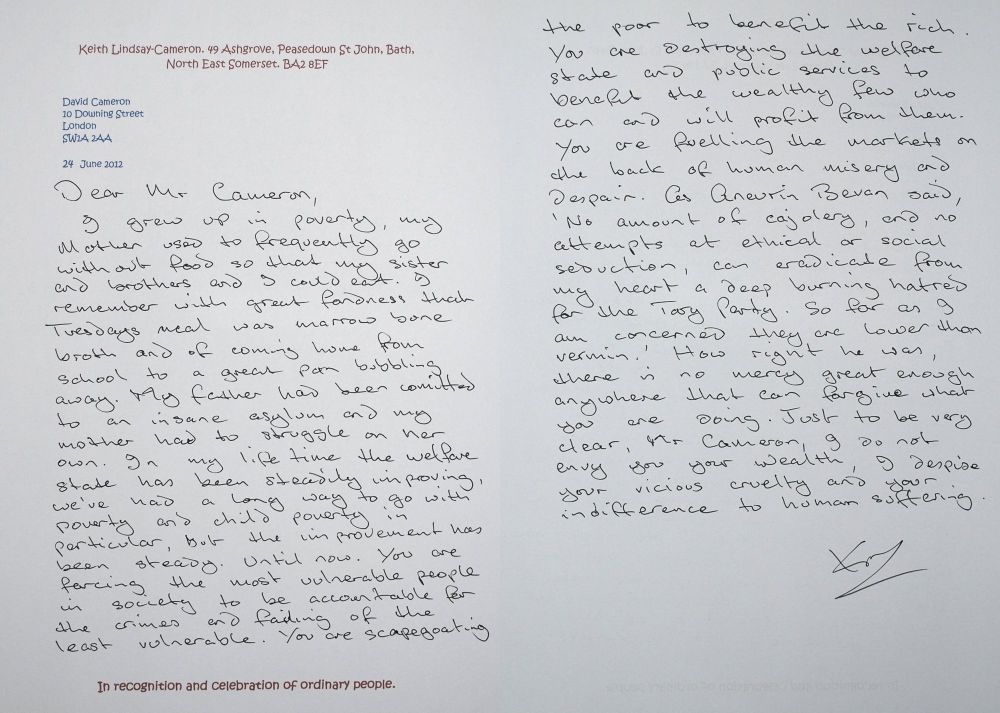 Keith Lindsay-Cameron. 49 Ashgrove, Peasedown St John, Bath,
North East Somerset. BA2 8EF
David Cameron
10 Downing Street
London
SW1A 2AA
24 June 2012
Dear Mr Cameron,
I grew up in poverty, my
Mother used to frequently go
without food so that my sister
and brothers and I could eat. I
remember with great fondness that
Tuesdays meal was marrow bone
broth and of coming home from
school to a great pan bubbling
away. My father had been comitted
to an insane asylum and my
mother had to struggle on her
own. In my life time the welfare
state has been steadily improving,
we've had a long way to go with
poverty and child poverty in
particular, but the improvement has
been steady. Until now. You are
forcing the most vulnerable people
in society to be accountable for
the crimes and failing of the
least vulnerable. You are scapegoating
In recognition and celebration of ordinary people.
the poor to benefit the rich.
You are destroying the welfare
state and public services to
benefit the wealthy few who
can and will profit from them.
You are fuelling the markets on
the back of human misery and
despair. As Aneurin Bevan said,
'No amount of cajolery, and no
attempts at ethical or social
seduction, can eradicate from
my heart a deep burning hatred
for the Tory Party. So far as I
am concerned they are lower than
vermin.' How right he was,
there is no mercy great enough
anywhere that can forgive what
you are doing. Just to be very
clear, Mr Cameron, I do not
envy you your wealth, I despise
your vicious cruelty and your
indifference to human suffering.